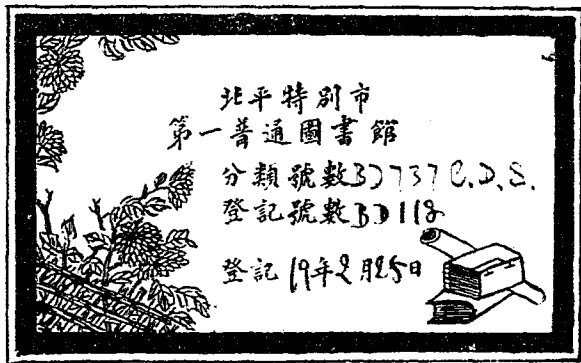 北平特別市
第一普通圖書館
分類號數BD737C.D.S.
登記號數BD118
登記19年2月25日